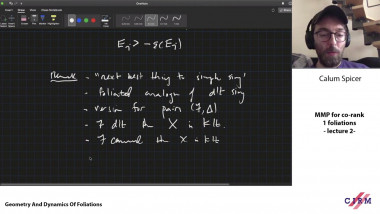 E_𝓕 > -ε(E_𝓕)
Remark - "next best thing to simple sing"
- Foliated analogue of dlt sing
- version for pairs (𝓕, Δ)
- 𝓕 dlt then X is klt.
- 𝓕 canonical then X is klt
Calum Spicer
MMP for co-rank
1 foliations
- lecture 2-
Geometry And Dynamics Of Foliations
CIRM